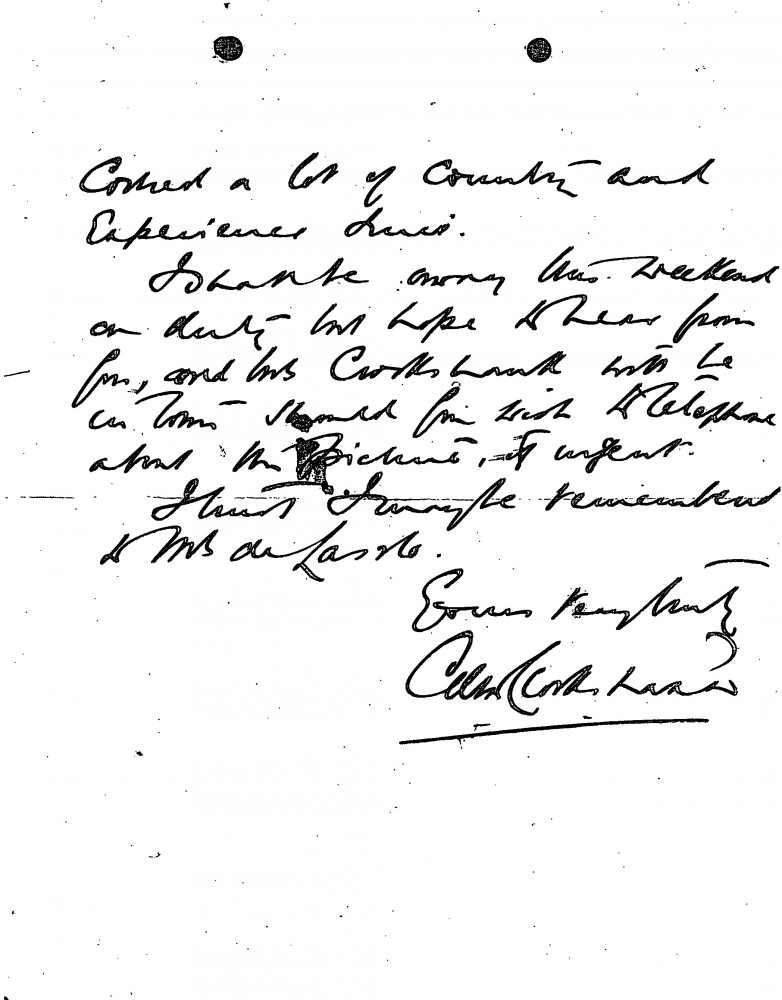 Covered a lot of Country and
Experience since.
I shall be away this weekend
on duty but hope to hear from
you, and Mrs Crookshank will be
in Town should you wish to telephone
about the Picture, if urgent.
I trust I may be remembered
to Mrs de Laszlo.
Yours very truly
Crookshank